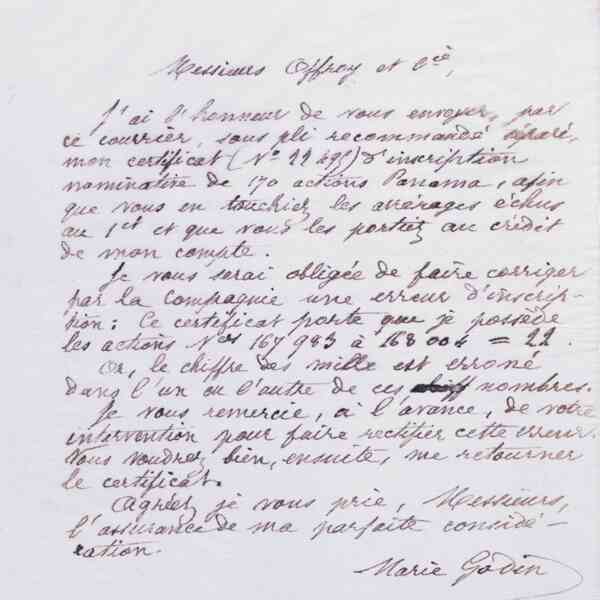 Messieurs Offroy et Cie,
J'ai l'honneur de vous envoyer, par
ce courrier, sous pli recommandé séparé,
mon certificat (No 22495) d'inscription
nominative de 170 actions Panama, afin
que vous en touchiez les arrérages échus
au 1er et que vous les portiez au crédit
de mon compte.
Je vous serai obligée de faire corriger
par la Compagnie une erreur d'inscrip-
tion: Ce certificat porte que je possède
les actions Nos 167983 à 168004 = 22.
Or, le chiffre des mille est erroné
dans l'un ou l'autre de ces nombres.
Je vous remercie, à l'avance, de votre
intervention pour faire rectifier cette erreur.
Vous voudrez bien, ensuite, me retourner
le certificat.
Agréez je vous prie, Messieurs,
l'assurance de ma parfaite considé-
ration.
Marie Godin